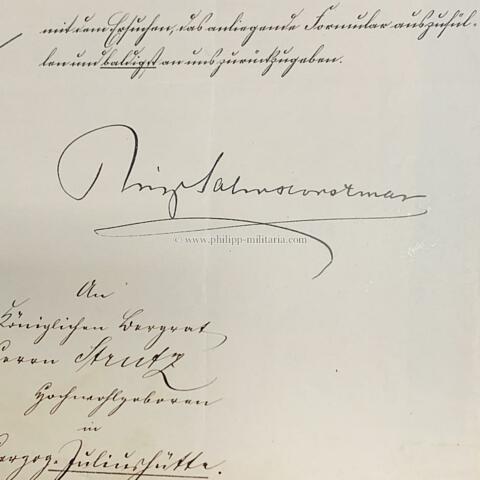 mit dem Ersuchen, das anliegende Formular auszufül-
len und baldigst an uns zurückzugeben.
Salm Horstmar
© www.philipp-militaria.com
An
Königlichen Bergrat
Herrn Strutz
Hochwohlgeboren
in
Herzog-Juliushütte.